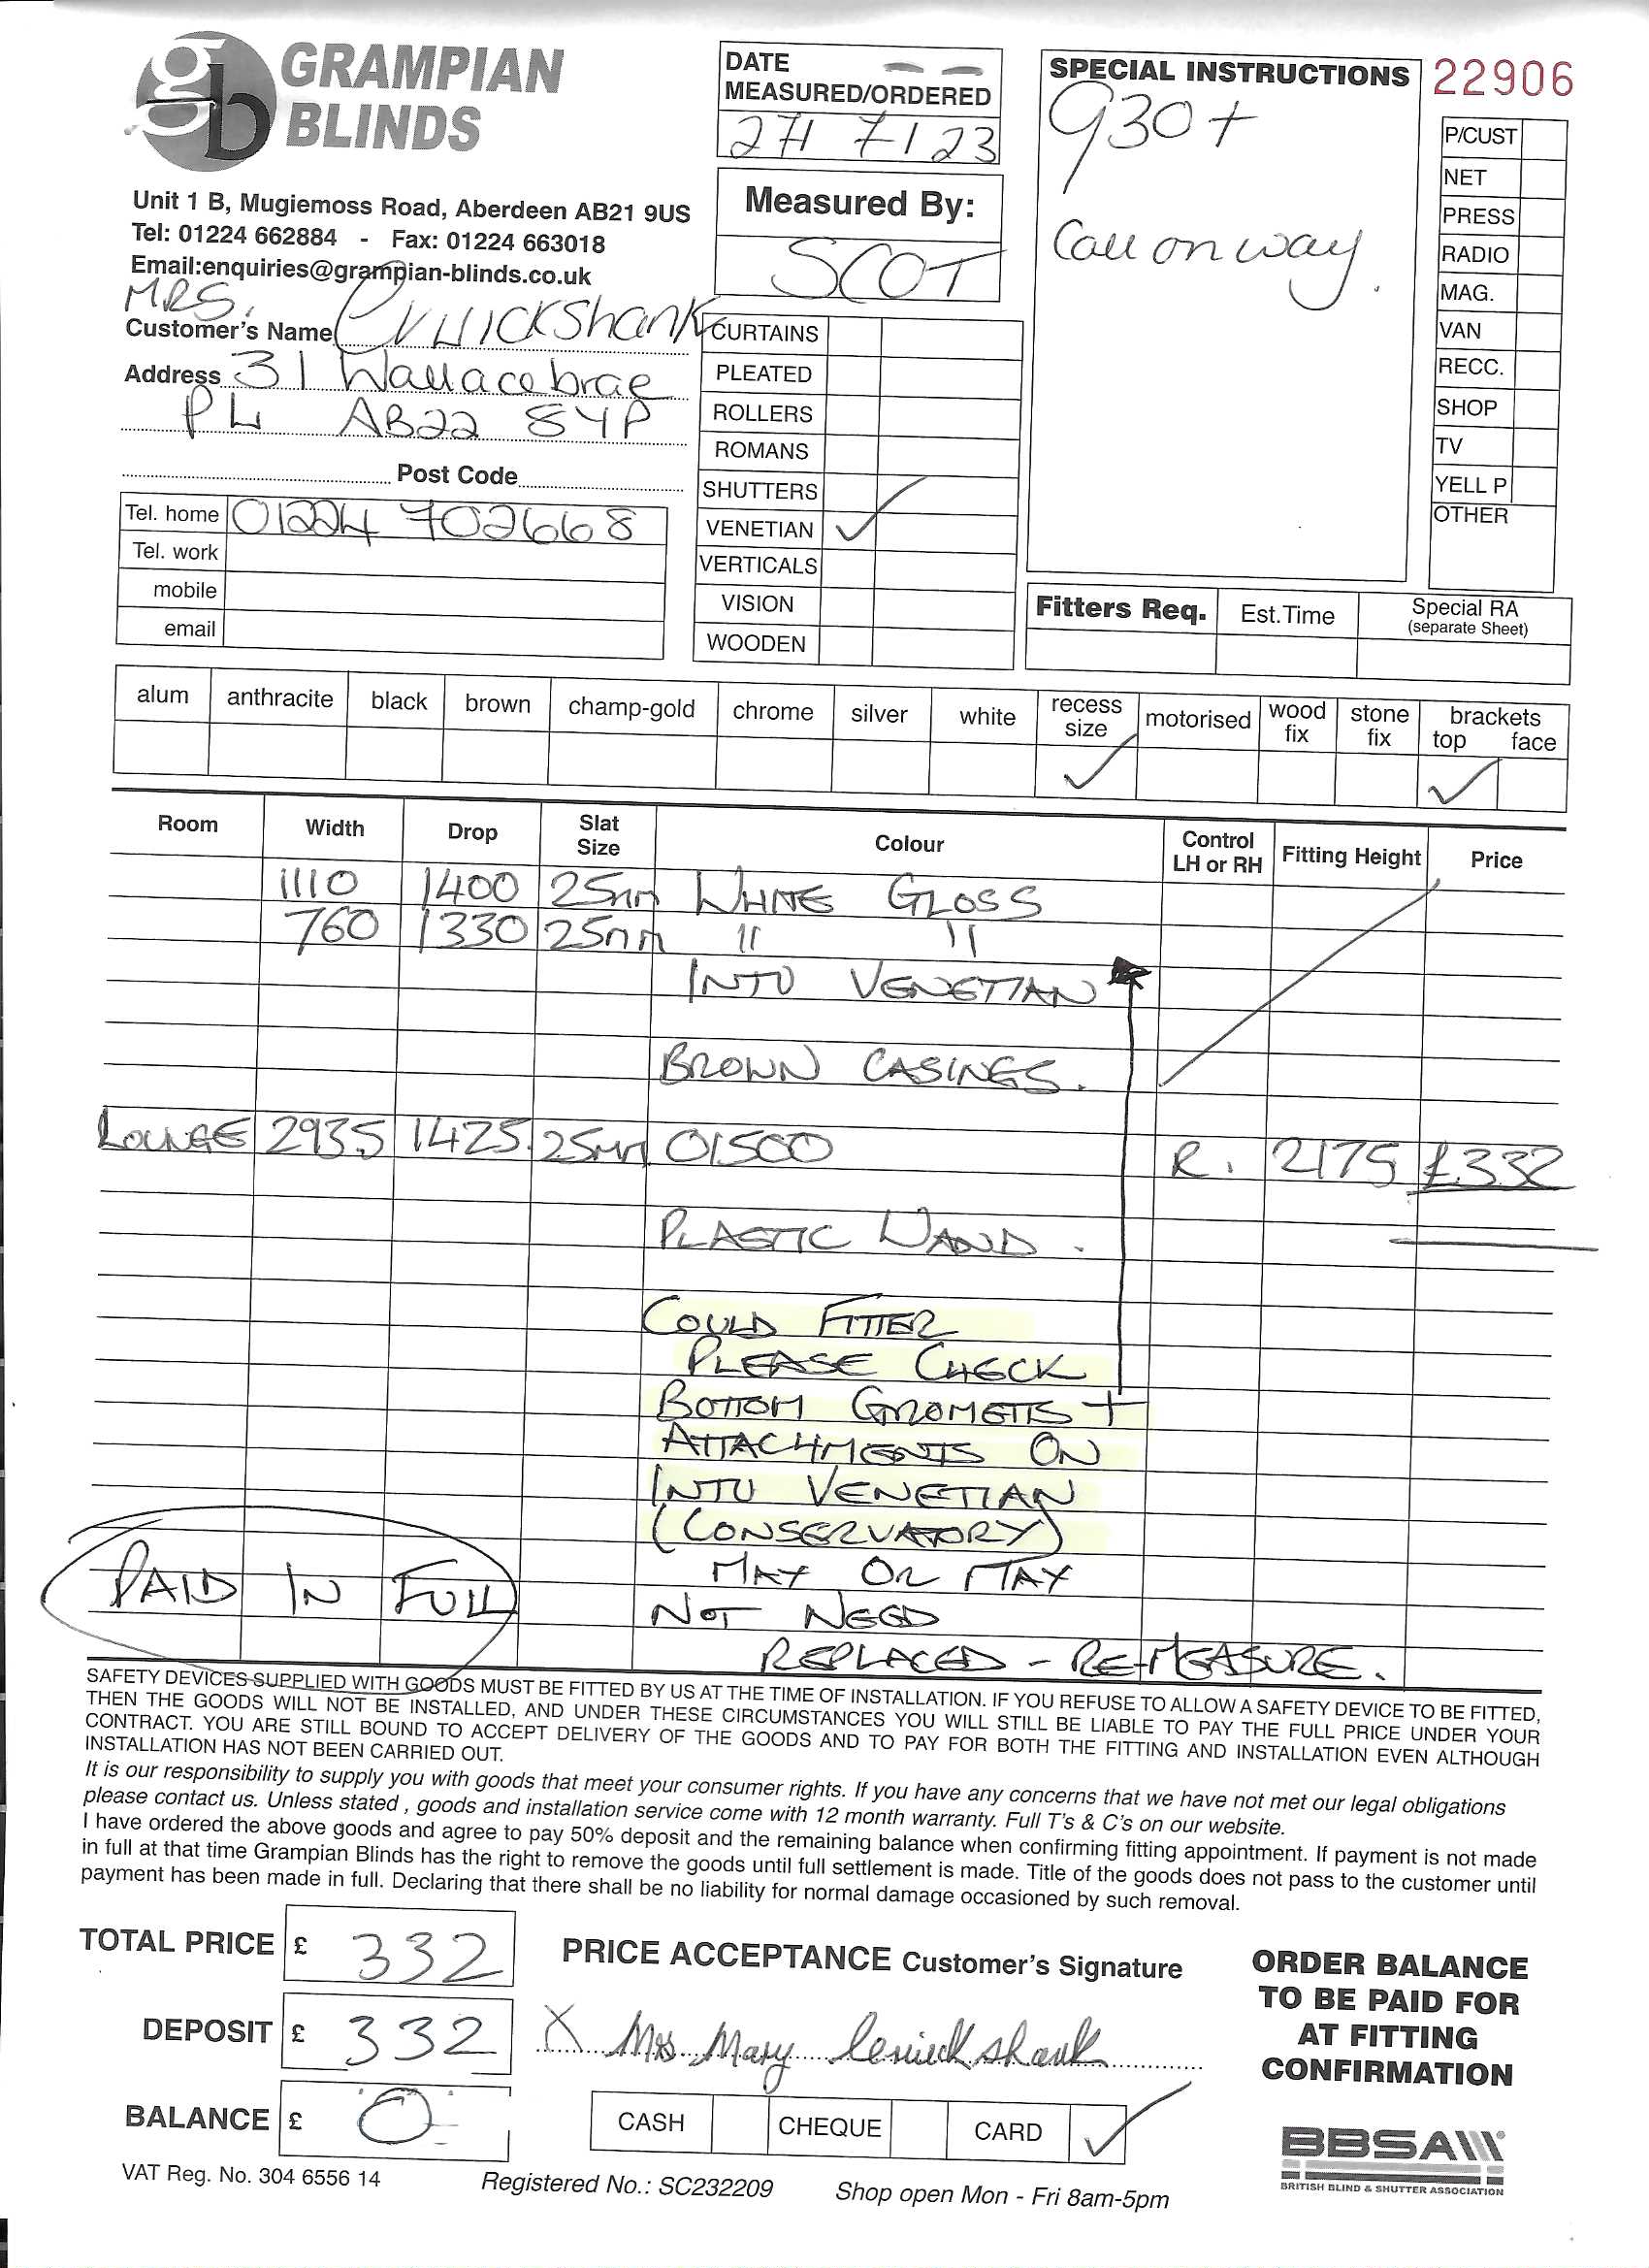 gb GRAMPIAN
BLINDS
Unit 1 B, Mugiemoss Road, Aberdeen AB21 9US
Tel: 01224 662884 - Fax: 01224 663018
Email:enquiries@grampian-blinds.co.uk
DATE
MEASURED/ORDERED
27/ 7/ 23
Measured By:
SCOT
SPECIAL INSTRUCTIONS
930+
Call on way.
22906
P/CUST
NET
PRESS
RADIO
MAG.
VAN
RECC.
SHOP
TV
YELL P
OTHER
MRS.
Customer's Name Cruickshank
Address 31 Wallacebrae
PL AB22 8YP
Post Code
Tel. home 01224 702668
Tel. work
mobile
email
CURTAINS
PLEATED
ROLLERS
ROMANS
SHUTTERS
VENETIAN ✓
VERTICALS
VISION
WOODEN
Fitters Req. Est.Time Special RA
(separate Sheet)
alum anthracite black brown champ-gold chrome silver white recess size motorised wood fix stone fix brackets top face
✓ ✓
Room Width Drop Slat Size Colour Control LH or RH Fitting Height Price
1110 1400 25mm WHITE GLOSS
760 1330 25mm " "
INTU VENETIAN
BROWN CASINGS.
LOUNGE 2935 1425 25mm 01500 R. 2175 £332
PLASTIC WAND.
COULD FITTER
PLEASE CHECK
BOTTOM GROMETTS +
ATTACHMENTS ON
INTU VENETIAN
(CONSERVATORY)
MAY OR MAY
NOT NEED
REPLACED - RE-MEASURE.
PAID IN FULL
SAFETY DEVICES SUPPLIED WITH GOODS MUST BE FITTED BY US AT THE TIME OF INSTALLATION. IF YOU REFUSE TO ALLOW A SAFETY DEVICE TO BE FITTED,
THEN THE GOODS WILL NOT BE INSTALLED, AND UNDER THESE CIRCUMSTANCES YOU WILL STILL BE LIABLE TO PAY THE FULL PRICE UNDER YOUR
CONTRACT. YOU ARE STILL BOUND TO ACCEPT DELIVERY OF THE GOODS AND TO PAY FOR BOTH THE FITTING AND INSTALLATION EVEN ALTHOUGH
INSTALLATION HAS NOT BEEN CARRIED OUT.
It is our responsibility to supply you with goods that meet your consumer rights. If you have any concerns that we have not met our legal obligations
please contact us. Unless stated , goods and installation service come with 12 month warranty. Full T's & C's on our website.
I have ordered the above goods and agree to pay 50% deposit and the remaining balance when confirming fitting appointment. If payment is not made
in full at that time Grampian Blinds has the right to remove the goods until full settlement is made. Title of the goods does not pass to the customer until
payment has been made in full. Declaring that there shall be no liability for normal damage occasioned by such removal.
TOTAL PRICE £ 332
DEPOSIT £ 332
BALANCE £ 0
PRICE ACCEPTANCE Customer's Signature
X Mrs Mary Cruickshank
CASH CHEQUE CARD ✓
ORDER BALANCE
TO BE PAID FOR
AT FITTING
CONFIRMATION
BBSA
BRITISH BLIND & SHUTTER ASSOCIATION
VAT Reg. No. 304 6556 14
Registered No.: SC232209
Shop open Mon - Fri 8am-5pm